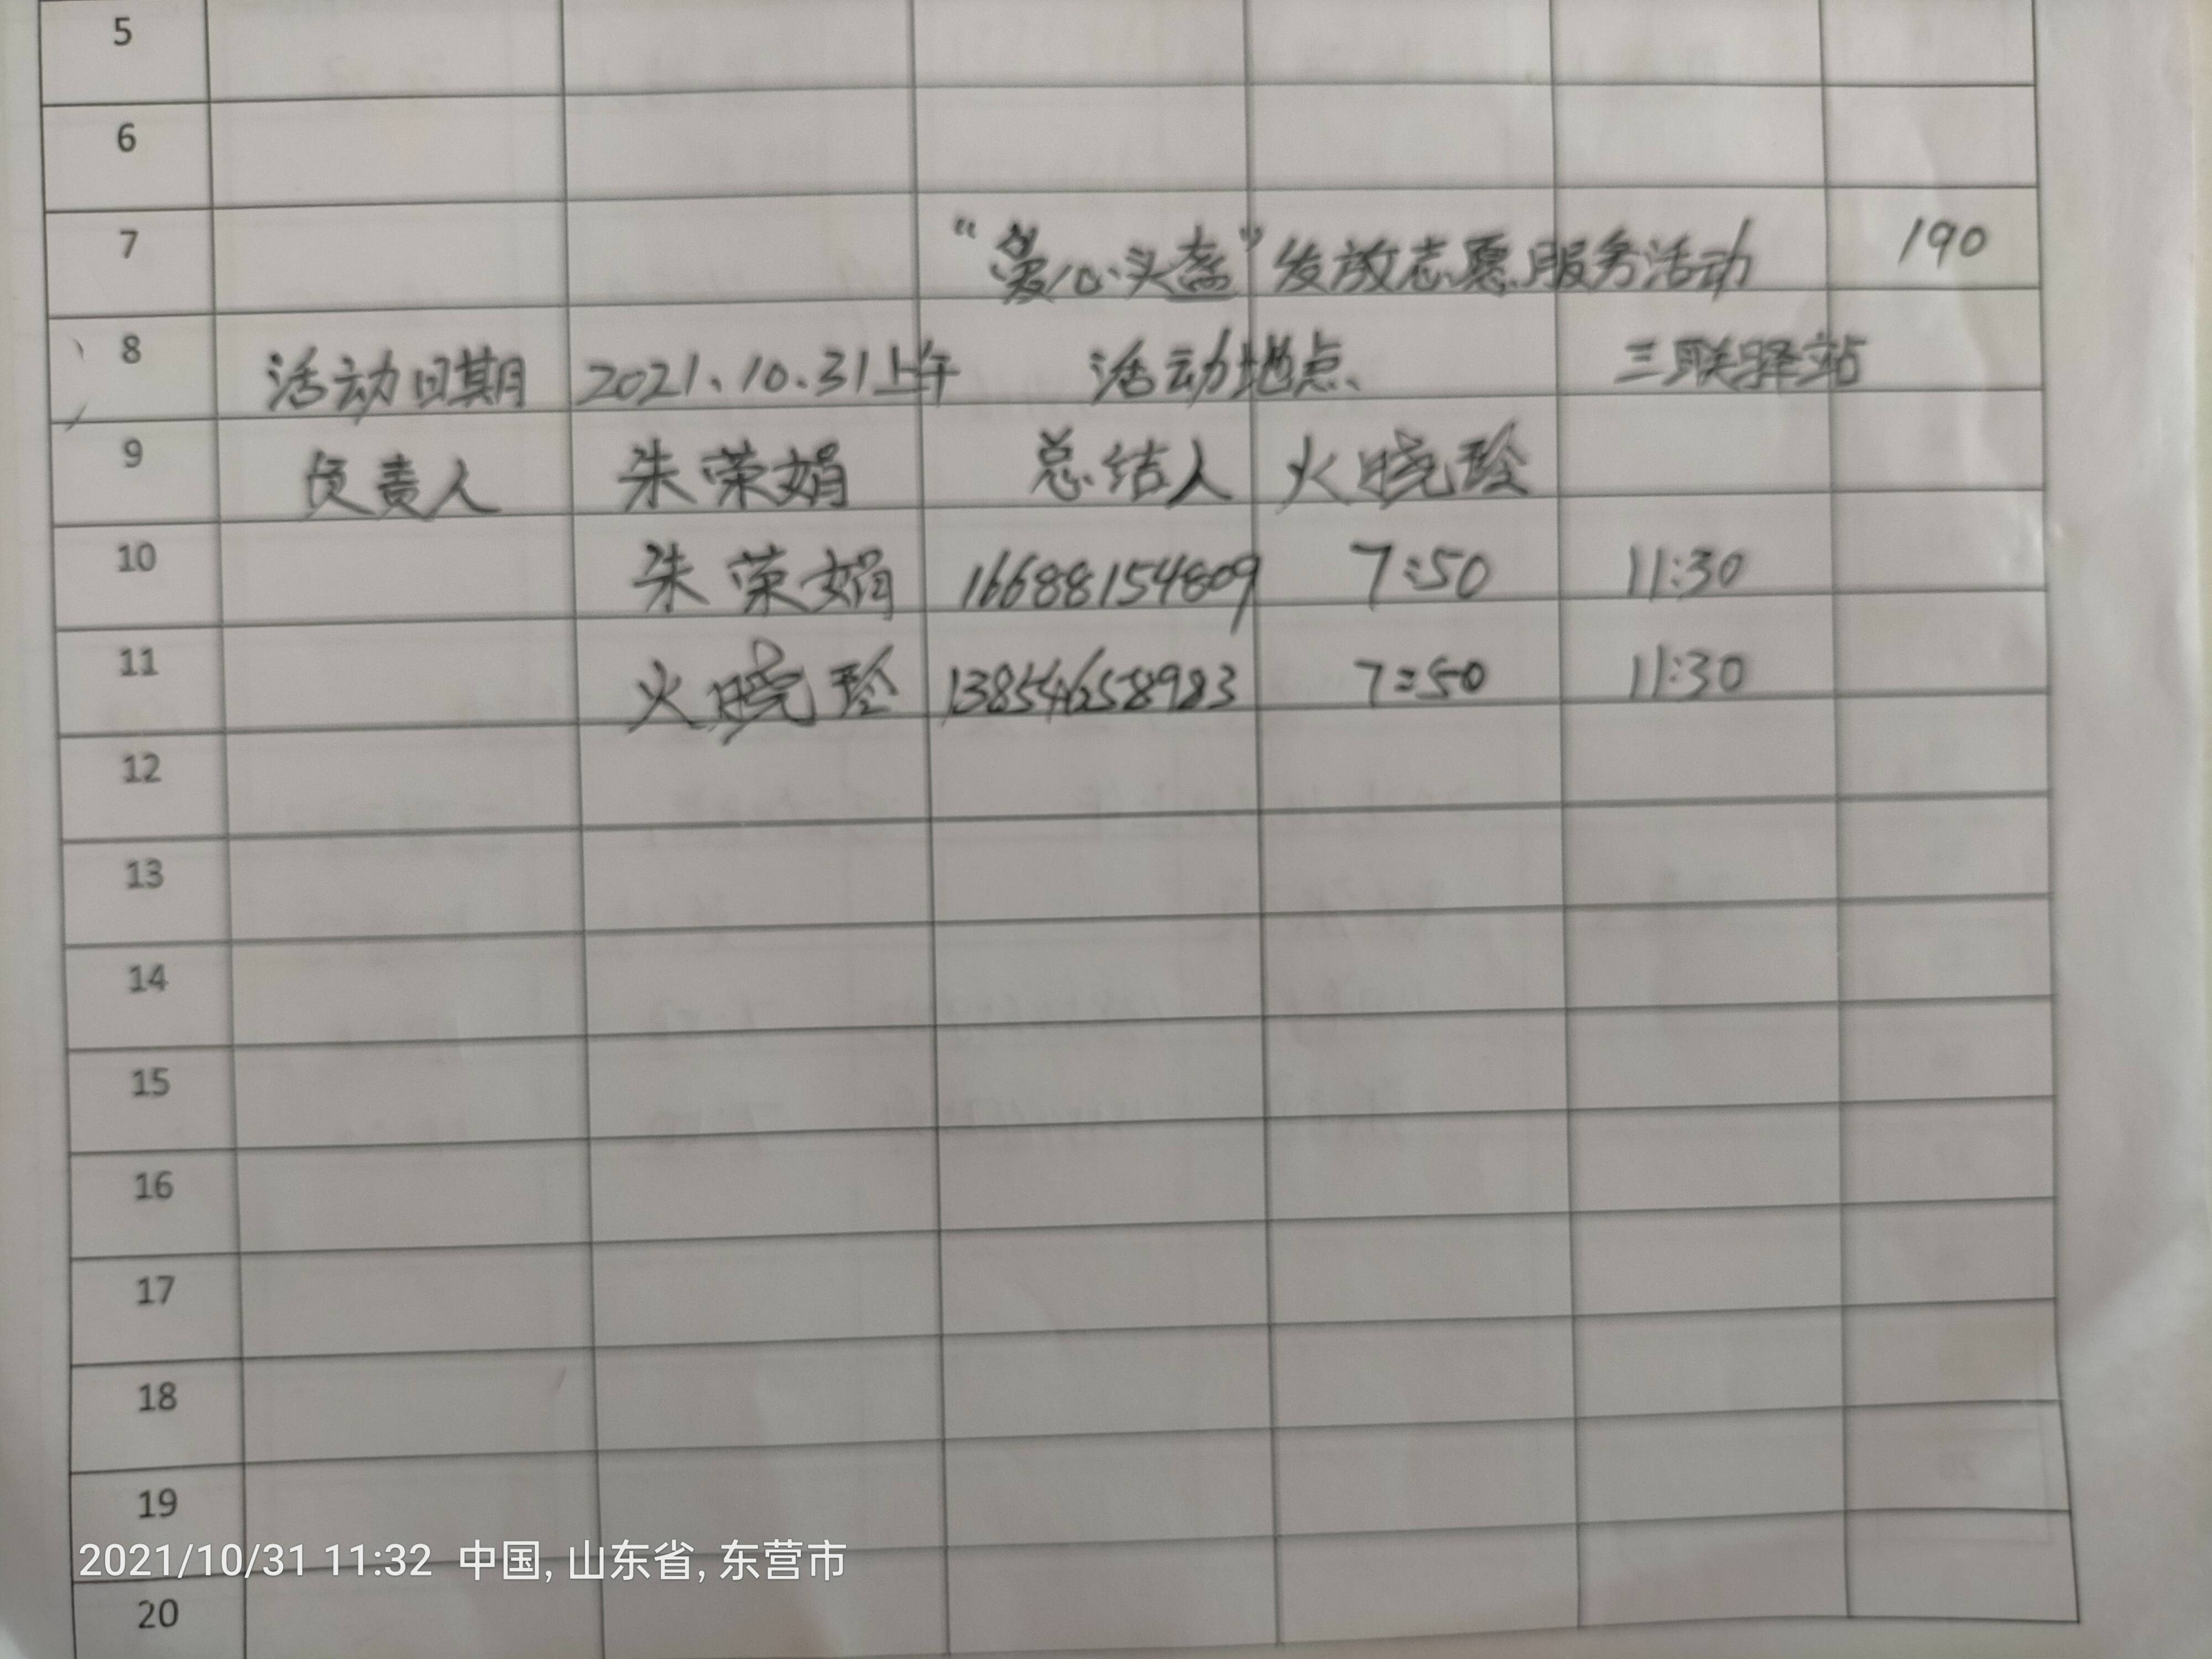 5
6
7 “爱心头盔”发放志愿服务活动 190
8 活动日期 2021.10.31上午 活动地点 三联驿站
9 负责人 朱荣娟 总结人 火晓玲
10 朱荣娟 16688154809 7:50 11:30
11 火晓玲 13854658983 7:50 11:30
12
13
14
15
16
17
18
19
2021/10/31 11:32 中国, 山东省, 东营市
20